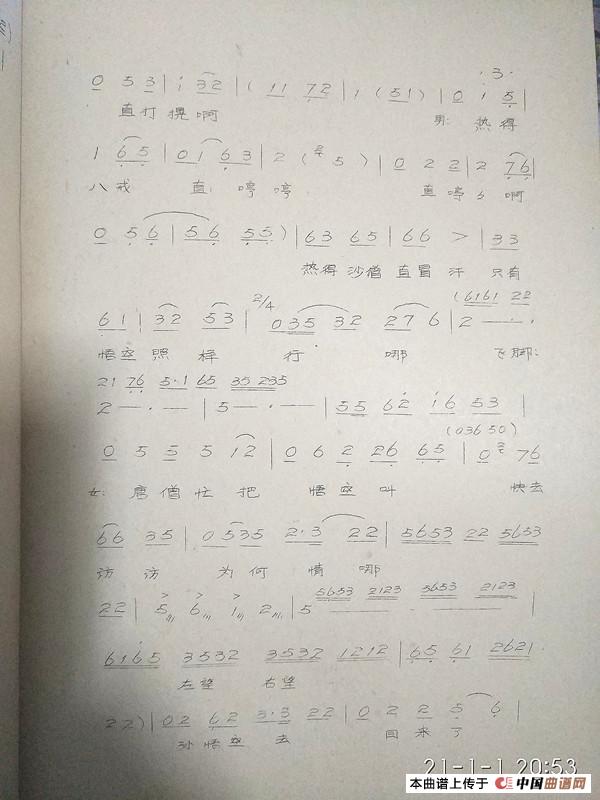 0 5 3 | i 32 | ( 11 72 | 1 (51) | 0 i 5 |
直打 提啊 男: 热得
1 65 | 01 63 | 2 ( 5 ) | 0 2 2 | 2 76 |
八戒 直: 哼哼 直哼 啊
0 56 | 56 55 ) | 63 65 | 66 > | 33
热得 沙僧 直冒 汗 只有
61 | 32 53 | 2/4 035 32 27 6 | 2 — · —
(6161 22
悟空 照样 行 哪 飞脚:
21 76 5·1 65 35 235
2 — · — | 5 — · — | 55 62 i6 53 |
(036 50)
0 5 5 5 12 | 0 6 2 26 65 | 0 76
女: 唐僧忙把 悟空叫 快去
66 35 | 0535 2·3 22 | 5653 22 5653
访访 为何 情哪
22 | 5 6 1 2 | 5
5653 2123 5653 2123
6165 3532 3532 1212 | 65 61 2621
左望 右望
22) | 02 62 3·3 22 | 0 2 2 5 6 |
孙悟空 去 回来了
21-1-1 20:53
本曲谱上传于 中国曲谱网